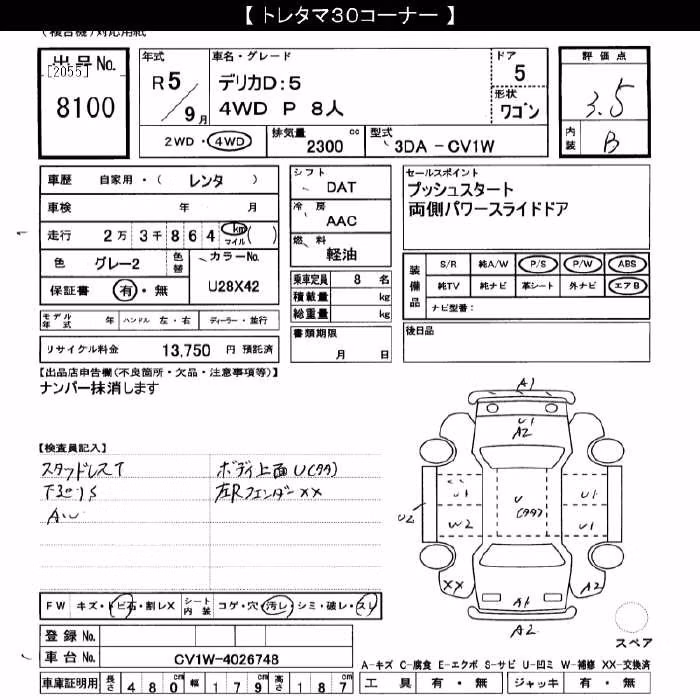 【 トレタマ30コーナー 】
(複合機)対応用紙
出品No.
[2055]
8100
年式
R5/9月
車名・グレード
デリカD:5
4WD P 8人
ドア
5
形状
ワゴン
2WD・4WD
排気量 2300 cc
型式 3DA-CV1W
評価点
3.5
内装 B
車歴 自家用・( レンタ )
車検 年 月
走行 2万3千864 km マイル ( )
色 グレー2 色替
カラーNo.
U28X42
保証書 有・無
シフト
DAT
冷房
AAC
燃料
軽油
乗車定員 8 名
積載量 kg
総重量 kg
セールスポイント
プッシュスタート
両側パワースライドドア
装備品
S/R 純A/W P/S P/W ABS
純TV 純ナビ 革シート 外ナビ エアB
ナビ型番:
モデル年式 年 ハンドル 左・右 ディーラー・並行
リサイクル料金 13,750 円 預託済
書類期限
月 日
後日品
【出品店申告欄(不良箇所・欠品・注意事項等)】
ナンバー抹消します
【検査員記入】
スタッドレスT
ボディ上面U(タタ)
左Rフェンダーxx
A.U
A1
U1
A2
U1
U
(タタ)
U1
U2
W2
U1
XX
A2
A1
A2
スペア
FW キズ・トビ石・割レX シート内装 コゲ・穴・汚レ・シミ・破レ・スレ
登録No.
車台No. CV1W-4026748
A-キズ C-腐食 E-エクボ S-サビ U-凹ミ W-補修 XX-交換済
車庫証明用 長さ 480 cm 幅 179 cm 高さ 187 cm
工具 有・無 ジャッキ 有・無